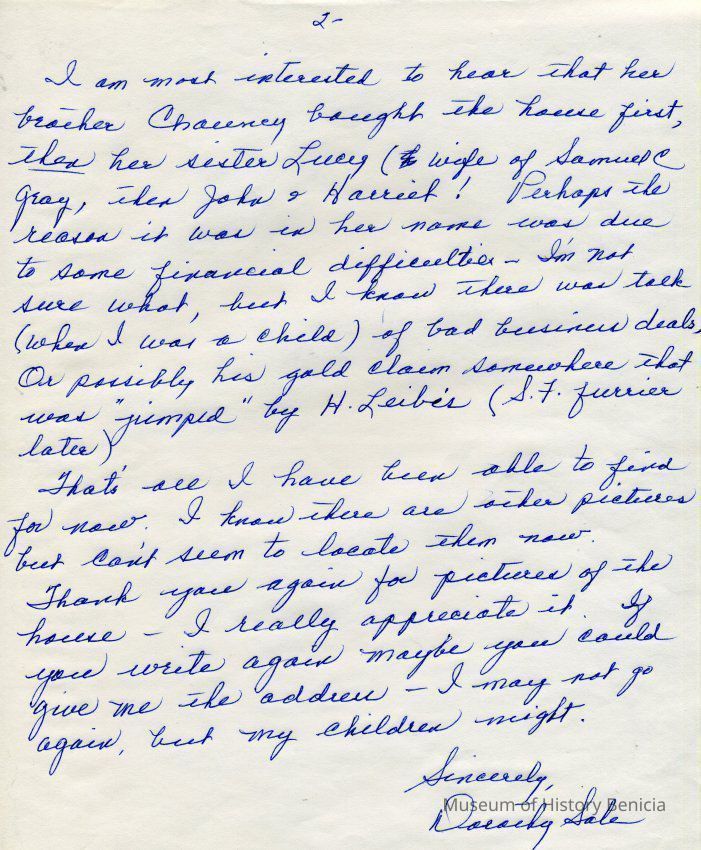 2-
I am most interested to hear that her
brother Chauncy bought the house first,
then her sister Lucy (wife of Samuel C
Gray, then John & Harriet! Perhaps the
reason it was in her name was due
to some financial difficulties - I'm not
sure what, but I know there was talk
(when I was a child) of bad business deals,
Or possibly his gold claim somewhere that
was "jumped" by H. Leibes (S.F. furrier
later)
That's all I have been able to find
for now. I know there are other pictures
but can't seem to locate them now.
Thank you again for pictures of the
house - I really appreciate it. If
you write again maybe you could
give me the address - I may not go
again, but my children might.
Sincerely,
Museum of History Benicia
Dorothy